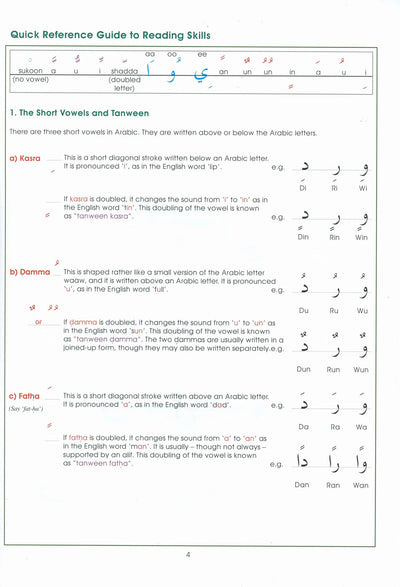 Quick Reference Guide to Reading Skills
aa oo ee
sukoon a u i shadda وُ ي an un un in a u i
(no vowel) (doubled
letter)
1. The Short Vowels and Tanween
There are three short vowels in Arabic. They are written above or below the Arabic letters.
a) Kasra This is a short diagonal stroke written below an Arabic letter.
It is pronounced 'i', as in the English word 'lip'. e.g. دِ رِ وِ
Di Ri Wi
If kasra is doubled, it changes the sound from 'i' to 'in' as in
the English word 'tin'. This doubling of the vowel is known
as "tanween kasra". e.g. دٍ رٍ وٍ
Din Rin Win
b) Damma This is shaped rather like a small version of the Arabic letter
waaw, and it is written above an Arabic letter. It is pronounced
'u', as in the English word 'full'. e.g. دُ رُ وُ
Du Ru Wu
or If damma is doubled, it changes the sound from 'u' to 'un' as
in the English word 'sun'. This doubling of the vowel is known
as "tanween damma". The two dammas are usually written in a
joined-up form, though they may also be written separately. e.g. دٌ رٌ وٌ
Dun Run Wun
c) Fatha This is a short diagonal stroke written above an Arabic letter.
(Say 'fat-ha') It is pronounced 'a', as in the English word 'dad'. e.g. دَ رَ وَ
Da Ra Wa
If fatha is doubled, it changes the sound from 'a' to 'an' as
in the English word 'man'. It is usually – though not always –
supported by an alif. This doubling of the vowel is known
as "tanween fatha". e.g. داً راً واً
Dan Ran Wan
4